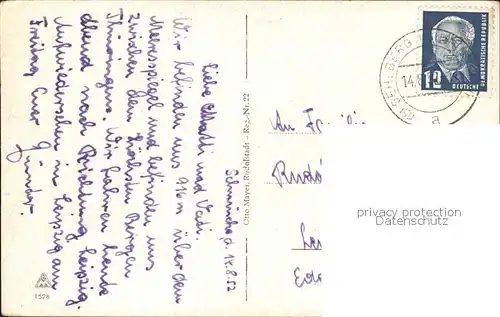 Schmücke d. 14.8.52
Liebe Mutti und Vati.
Wir befinden uns 916 m über dem
Meeresspiegel und befinden uns
zwischen den höchsten Bergen
Thüringens. Wir fahren heute
Abend nach Richtung Leipzig.
Aufwiedersehen in Leipzig am
Freitag Euer Günter.
Otto Mayer, Rudolstadt – Reg.-Nr. 22
1528
An Fr
Rudo
Lei
GEHLBERG
14.8
a
12
DEUTSCHE
DEMOKRATISCHE REPUBLIK
privacy protection
Datenschutz